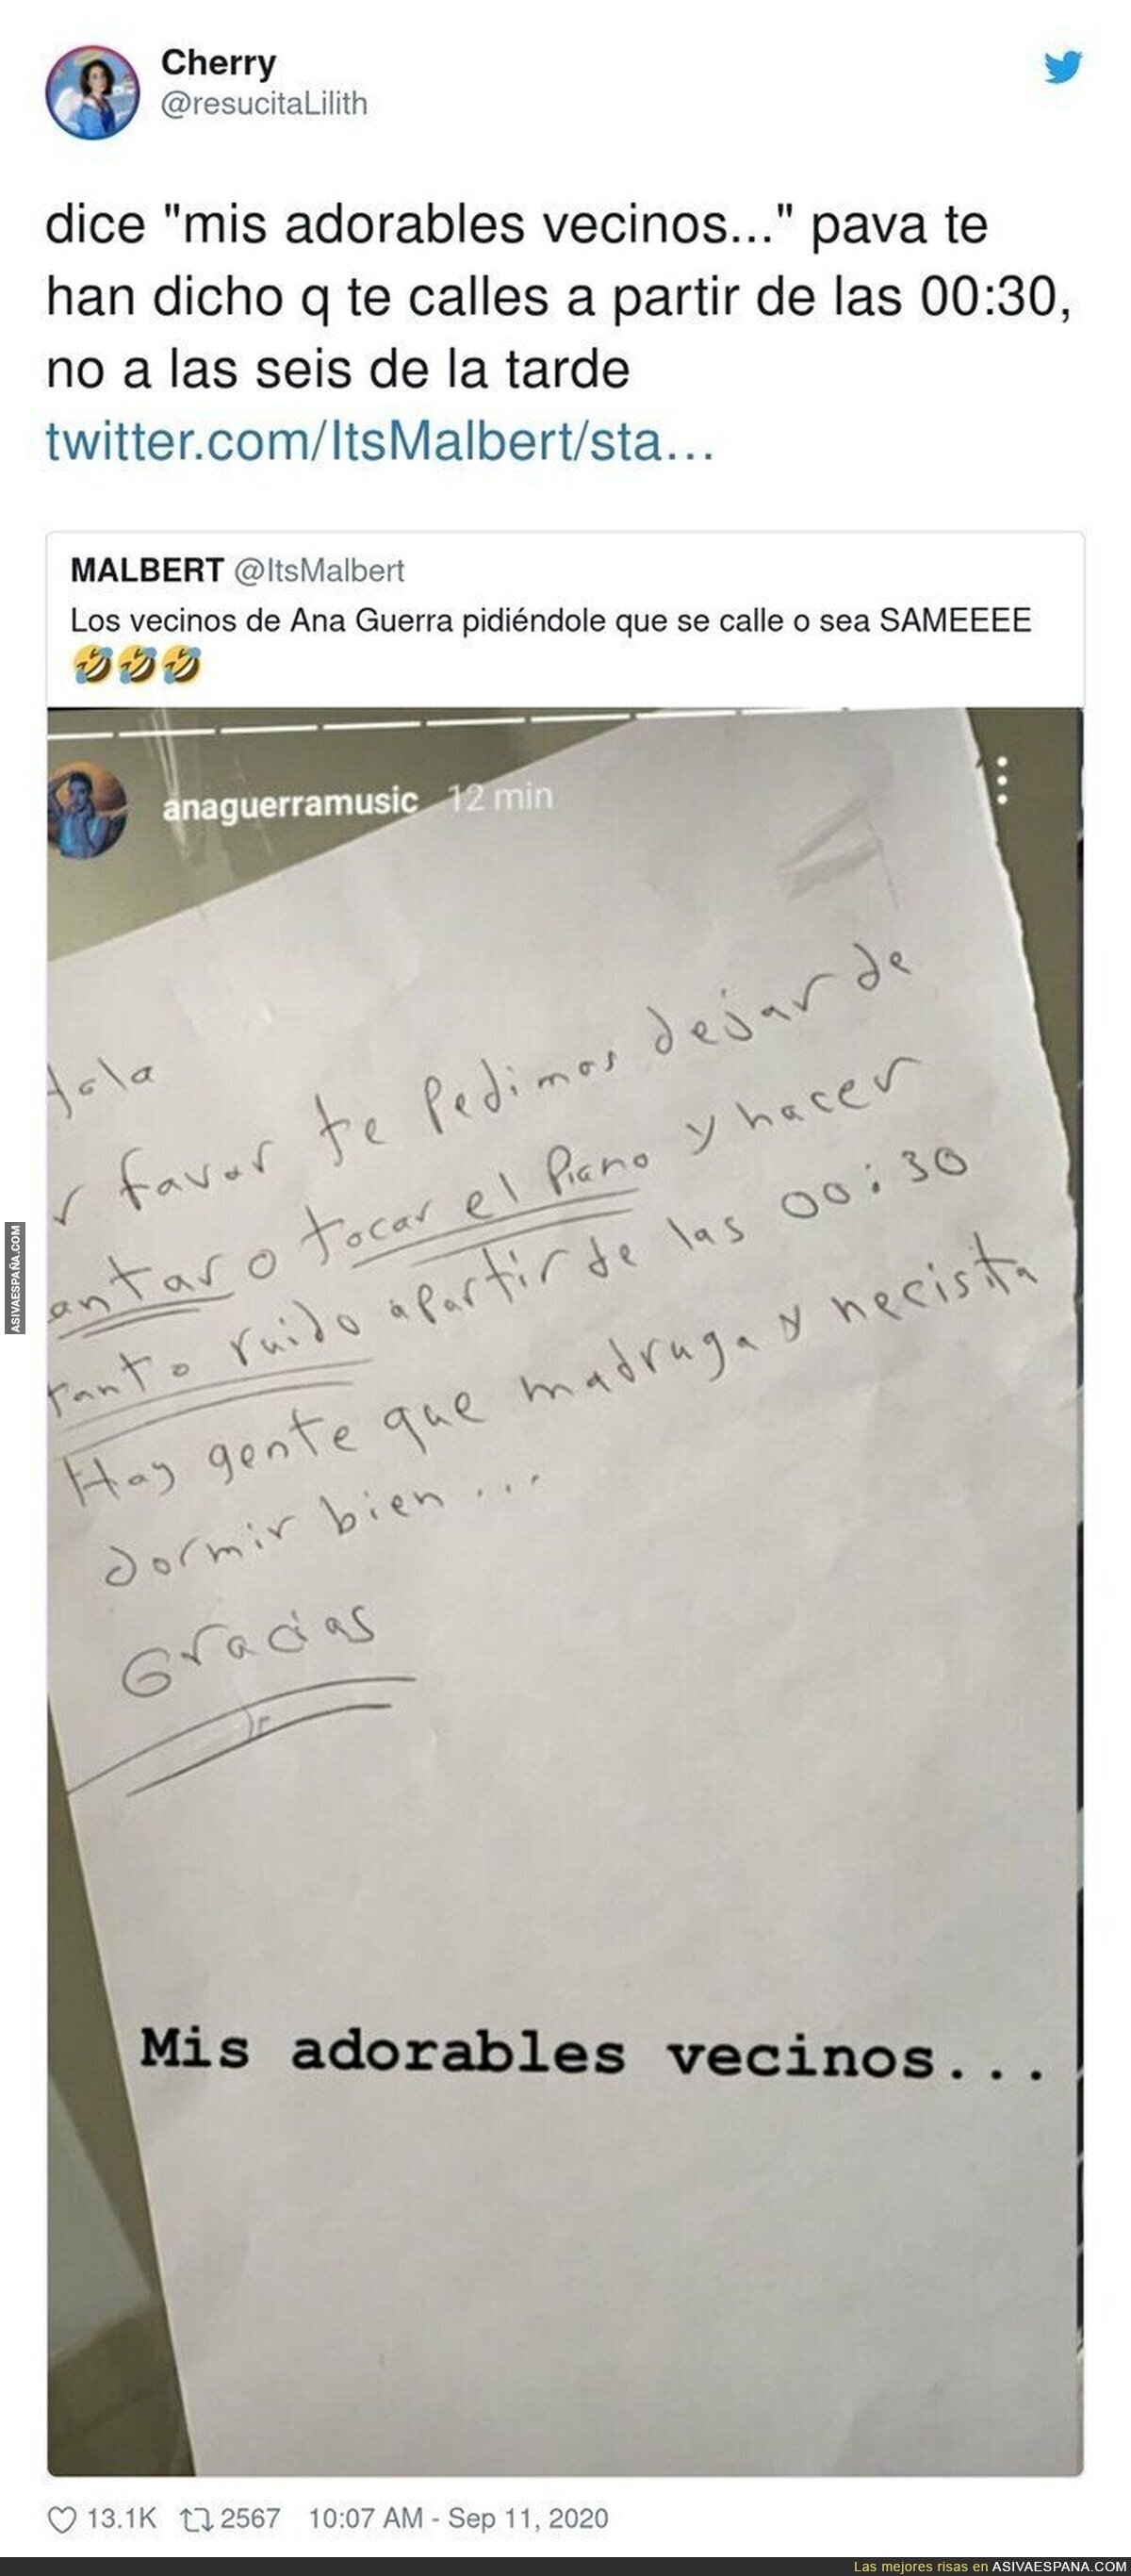 Cherry
@resucitaLilith
dice "mis adorables vecinos..." pava te
han dicho q te calles a partir de las 00:30,
no a las seis de la tarde
twitter.com/ItsMalbert/sta…
MALBERT @ItsMalbert
Los vecinos de Ana Guerra pidiéndole que se calle o sea SAMEEEE
🤣🤣🤣
anaguerramusic 12 min
Hola
r favor te pedimos dejar de
antar o tocar el Piano y hacer
tanto ruido apartir de las 00:30
Hay gente que madruga y necisita
dormir bien...
Gracias
Mis adorables vecinos...
13.1K 2567 10:07 AM - Sep 11, 2020
ASIVAESPAÑA.COM
Las mejores risas en ASIVAESPANA.COM